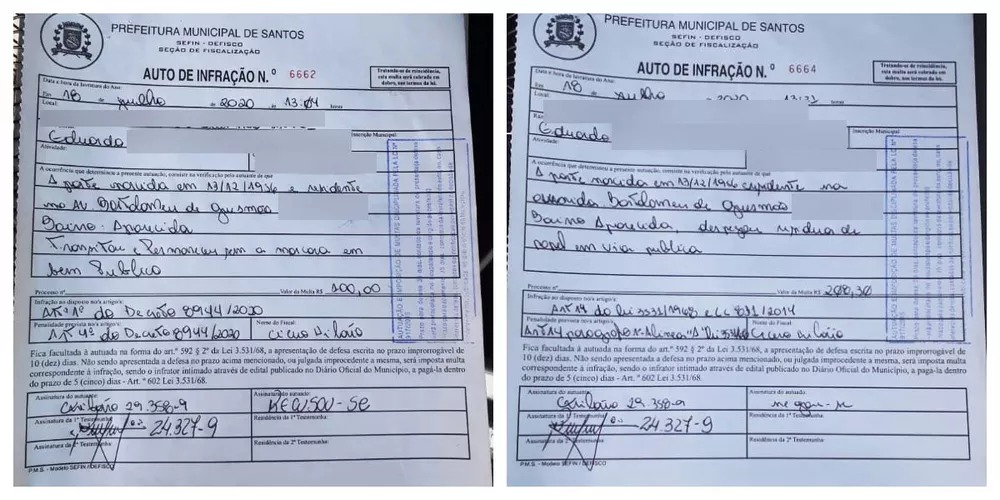 PREFEITURA MUNICIPAL DE SANTOS
SEFIN - DEFISCO
SEÇÃO DE FISCALIZAÇÃO
AUTO DE INFRAÇÃO N.º 6662
Tratando-se de reincidência,
esta multa será cobrada em
dobro, nos termos da lei.
Data e hora da lavratura do Auto:
Em 18 julho de 2020 13:04 horas
Local:
Eduardo
Inscrição Municipal
Atividade:
A ocorrência que determinou a presente autuação, consiste na verificação pelo autuante de que
A parte nascida em 13/12/1956 e residente
na Av. Bartolomeu de Gusmão
Bairro: Aparecida
Transitar e Permanecer sem a mascara em
bem Publico
Processo nº Valor da Multa R$ 100,00
Infração ao disposto no/s artigo/s:
Artº 1º do Decreto 8944/2020
Penalidade prevista no/s artigo/s: Nome do Fiscal:
Artº 4º do Decreto 8944/2020 Cicero Hilário
Fica facultada à autuada na forma do art.º 592 § 2º da Lei 3.531/68, a apresentação de defesa escrita no prazo improrrogável de
10 (dez) dias. Não sendo apresentada a defesa no prazo acima mencionado, ou julgada improcedente a mesma, será imposta multa
correspondente à infração, sendo o infrator intimado através de edital publicado no Diário Oficial do Município, a pagá-la dentro
do prazo de 5 (cinco) dias - Art. º 602 Lei 3.531/68.
Assinatura do autuante: Assinatura do autuado:
29.358-9 RECUSOU-SE
Assinatura da 1ª Testemunha: Residência da 1ª Testemunha:
24.327-9
Assinatura da 2ª Testemunha: Residência da 2ª Testemunha:
P.M.S. - Modelo SEFIN / DEFISCO
PREFEITURA MUNICIPAL DE SANTOS
SEFIN - DEFISCO
SEÇÃO DE FISCALIZAÇÃO
AUTO DE INFRAÇÃO N.º 6664
Tratando-se de reincidência,
esta multa será cobrada em
dobro, nos termos da lei.
Data e hora da lavratura do Auto:
Em 18 julho de 2020 horas
Local:
Eduardo
Inscrição Municipal
Atividade:
A ocorrência que determinou a presente autuação, consiste na verificação pelo autuante de que
A parte nascida em 13/12/1956 e residente na
avenida Bartolomeu de Gusmão
Bairro Aparecida, despejou residuo de
papel em via publica
Processo nº Valor da Multa R$ 208,30
Infração ao disposto no/s artigo/s:
Art 14 da lei 3531/1968 e LC 831/2014
Penalidade prevista no/s artigo/s: Nome do Fiscal:
Cicero Hilário
Fica facultada à autuada na forma do art.º 592 § 2º da Lei 3.531/68, a apresentação de defesa escrita no prazo improrrogável de
10 (dez) dias. Não sendo apresentada a defesa no prazo acima mencionado, ou julgada improcedente a mesma, será imposta multa
correspondente à infração, sendo o infrator intimado através de edital publicado no Diário Oficial do Município, a pagá-la dentro
do prazo de 5 (cinco) dias - Art. º 602 Lei 3.531/68.
Assinatura do autuante: Assinatura do autuado:
29.358-9
Assinatura da 1ª Testemunha: Residência da 1ª Testemunha:
24.327-9
Assinatura da 2ª Testemunha: Residência da 2ª Testemunha:
P.M.S. - Modelo SEFIN / DEFISCO